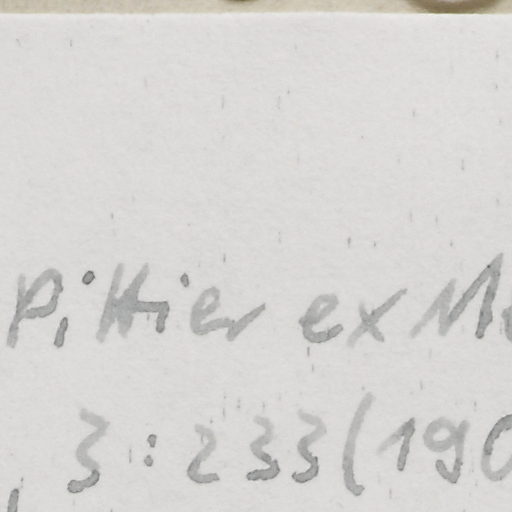 Pittier ex
3:233(190